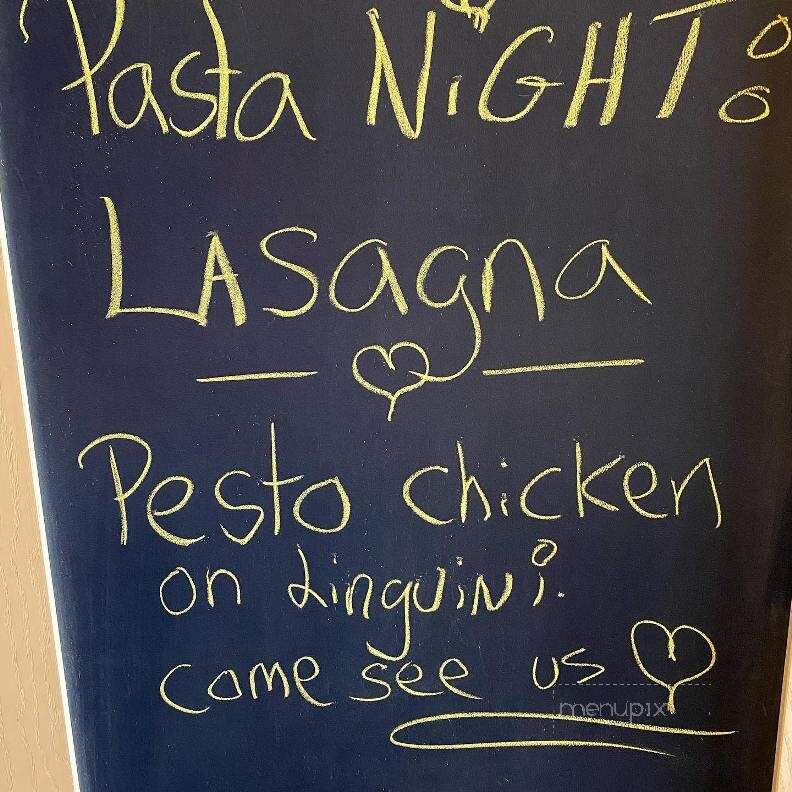 Pasta NiGHT:
LAsagna
Pesto chicken
on Linguini.
come see us
menupix